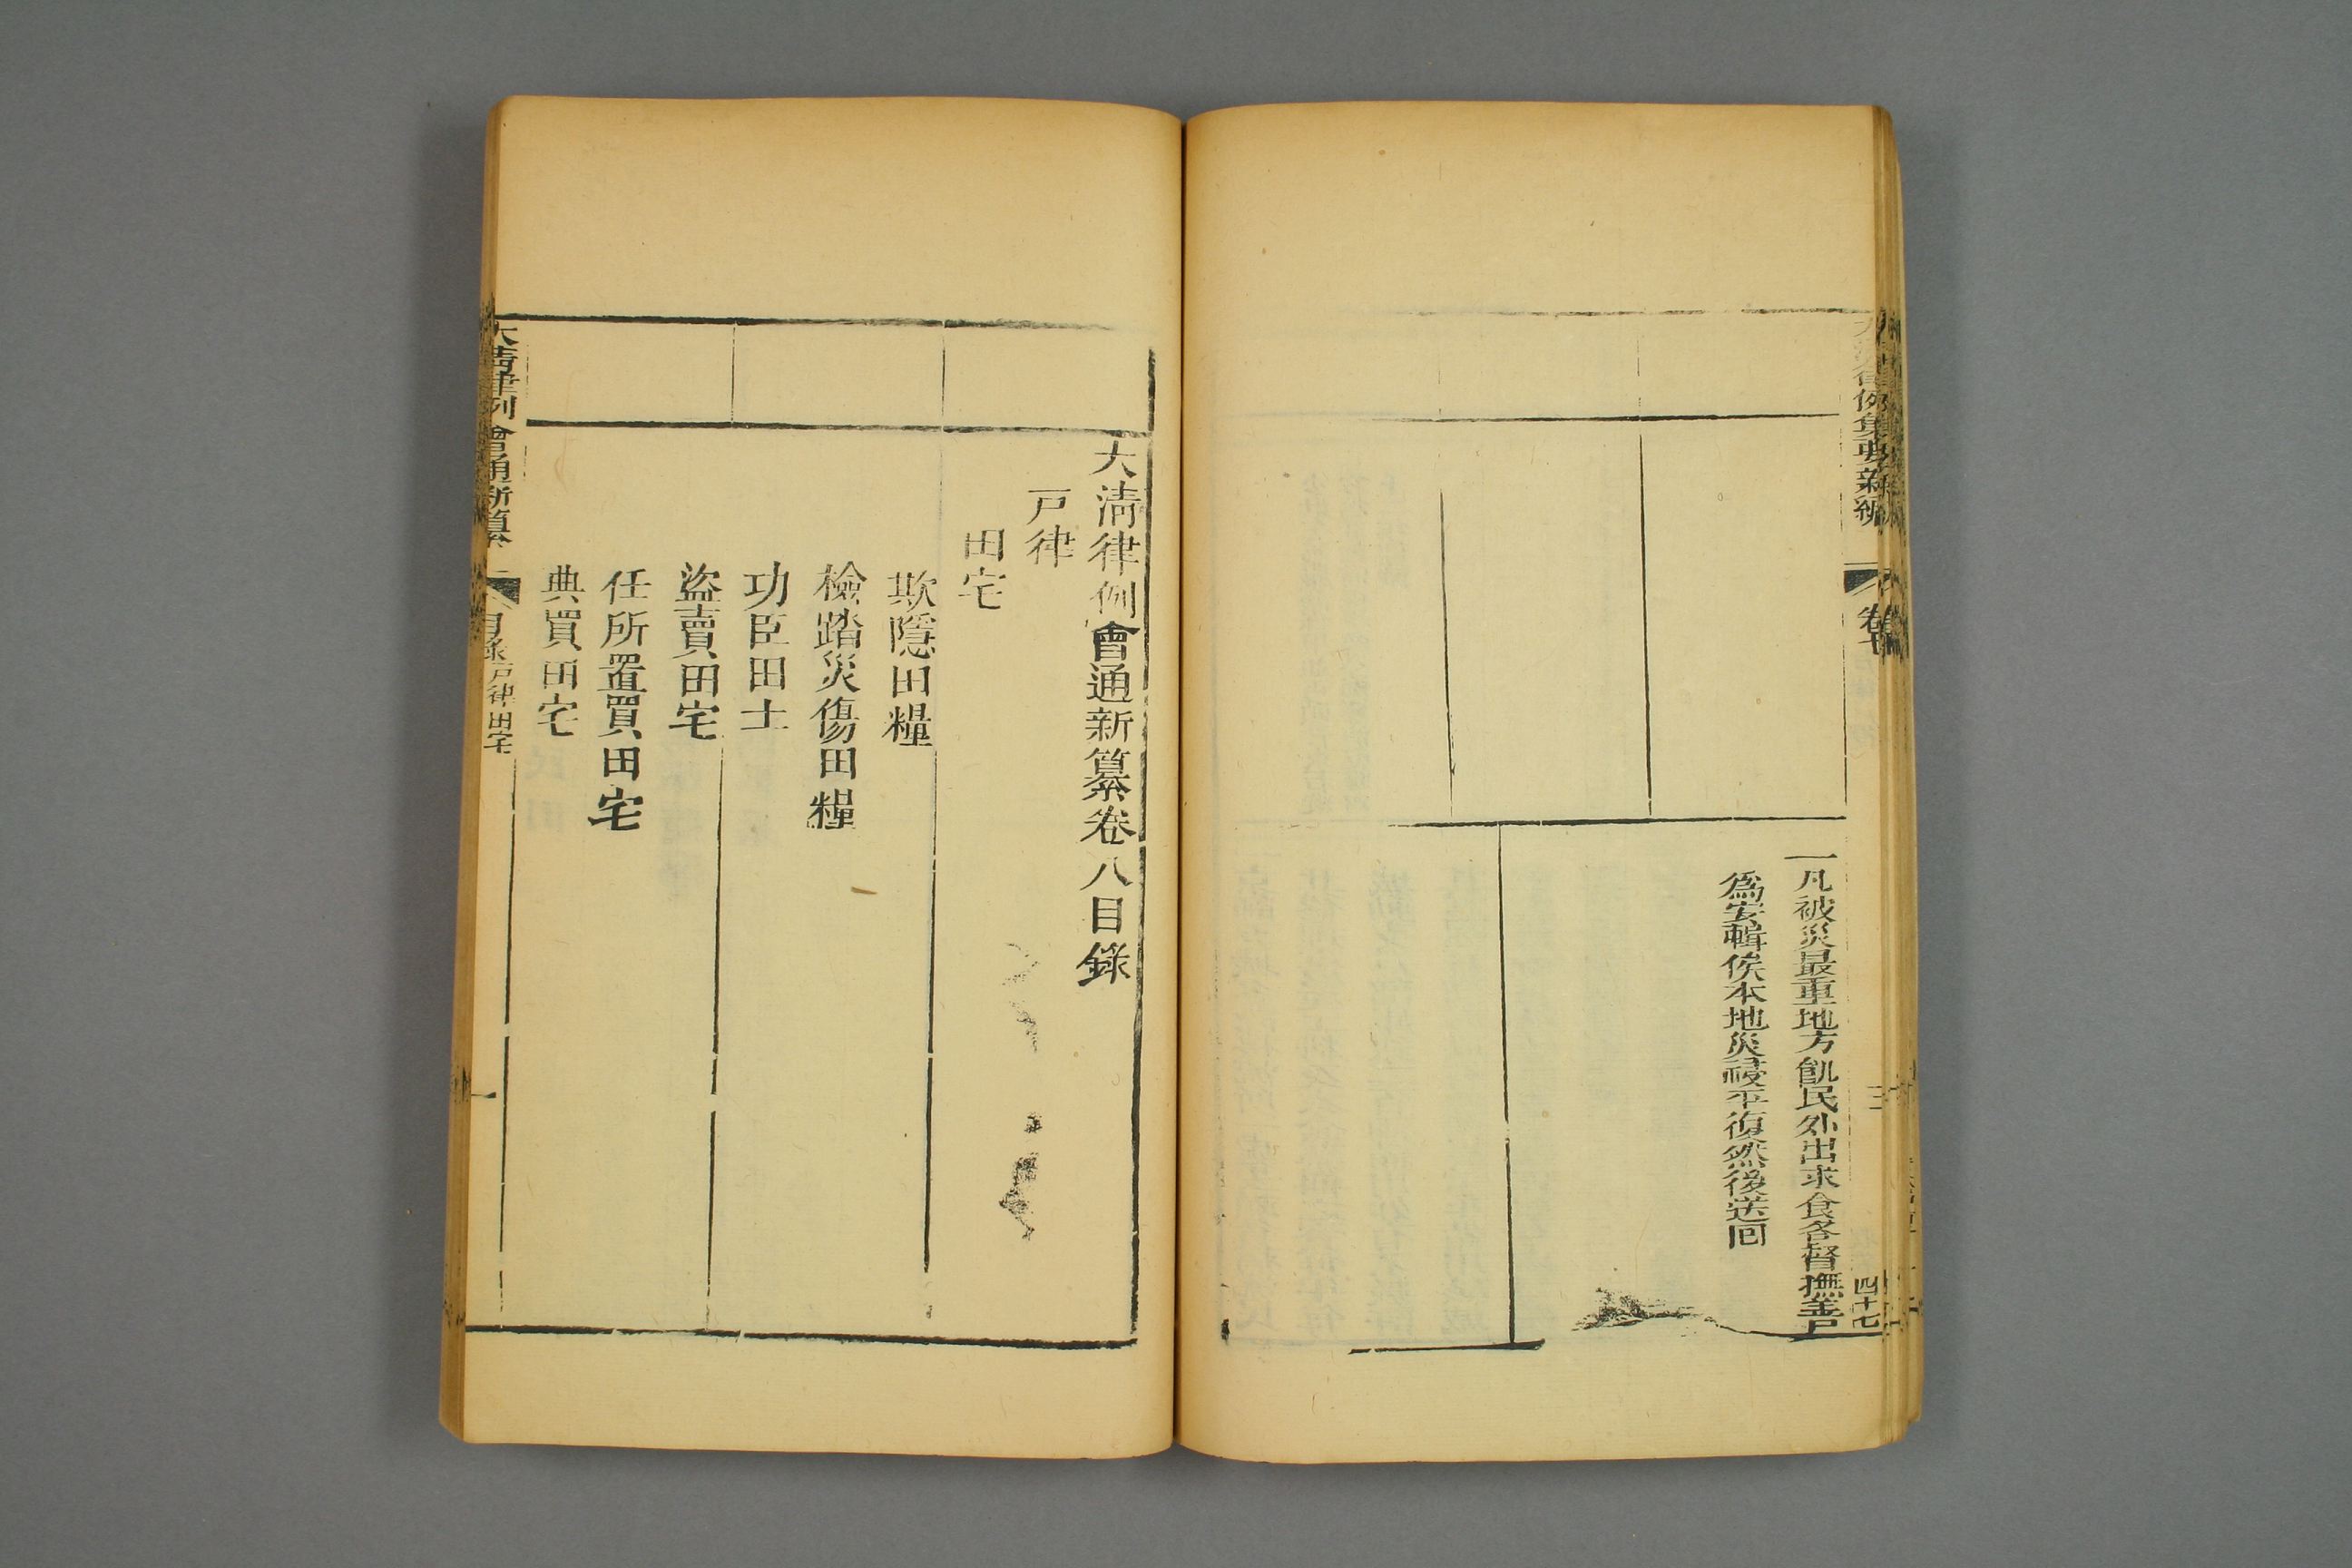 一凡被災最重地方飢民外出求食各督撫善
爲安輯俟本地災祲平復然後送回
四十七
大清律例會通新纂卷八目錄
戸律
田宅
欺隱田糧
檢踏災傷田糧
功臣田土
盜賣田宅
任所置買田宅
典買田宅
大清律例會通新纂
目錄戸律田宅
一